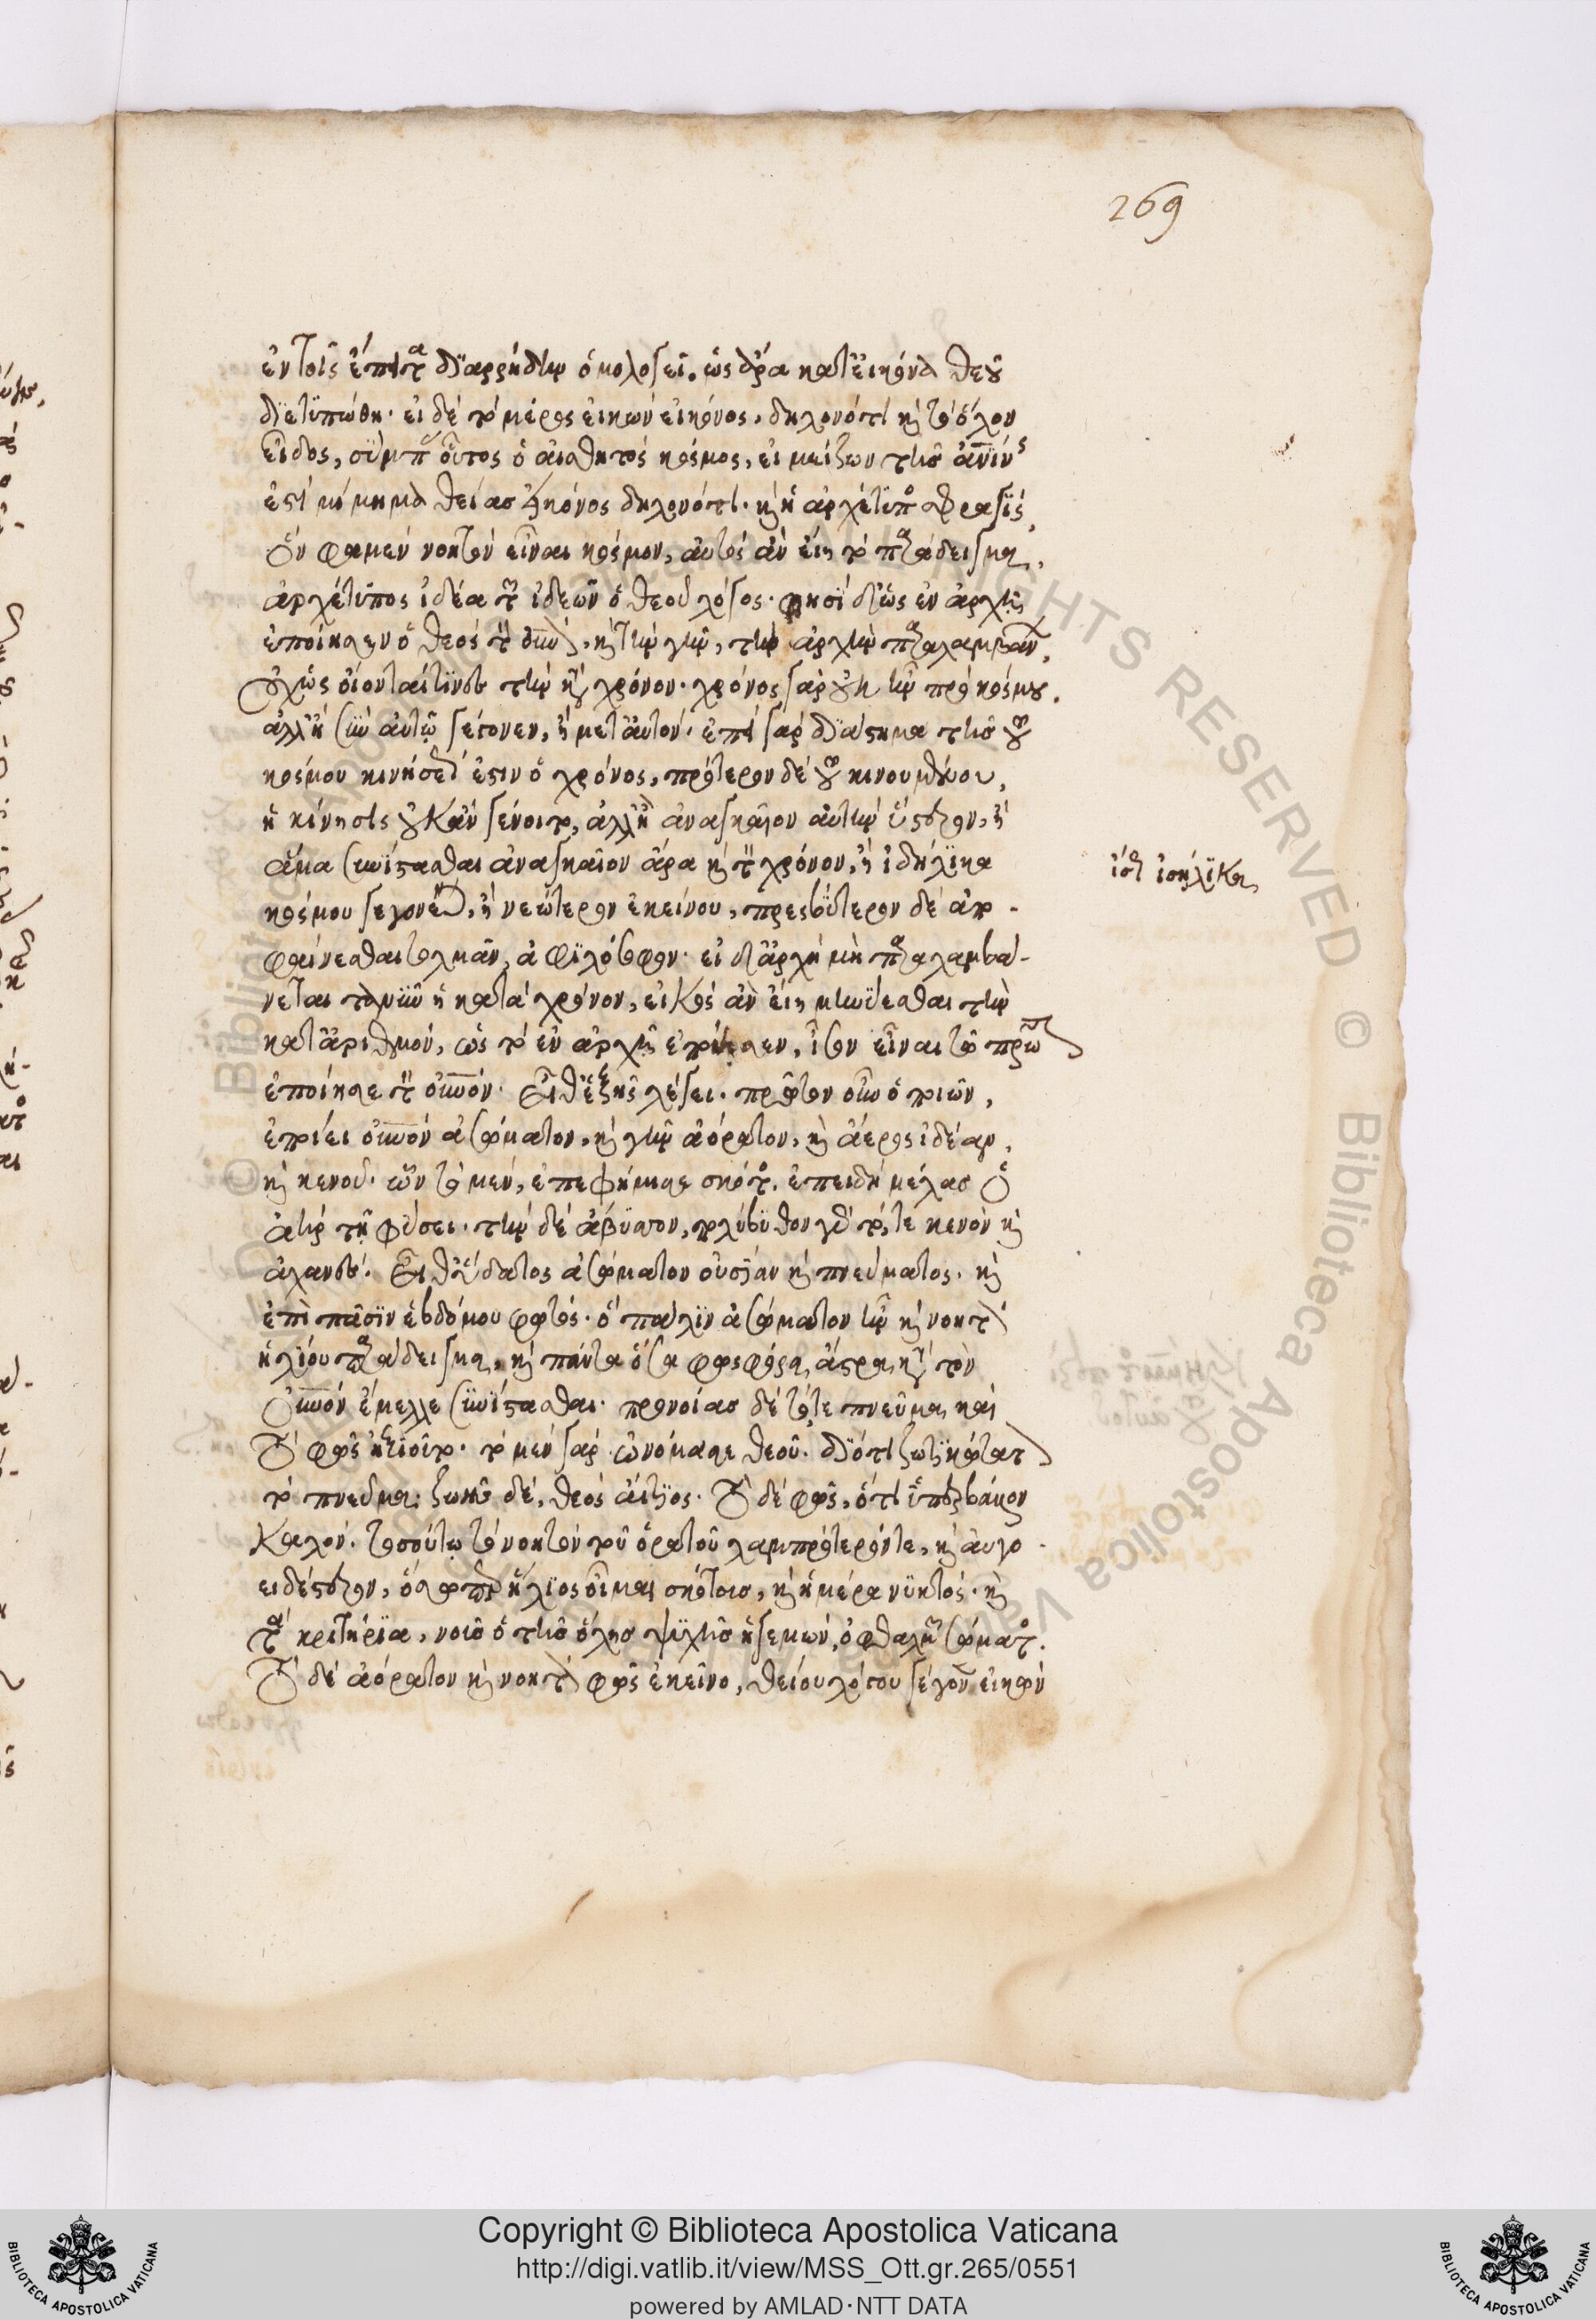 269
ἐν τοῖς ἔπειτα διαρρήδην ὁμολογεῖ. ὡς ἄρα κατ' εἰκόνα θεοῦ
διετυπώθη. εἰ δὲ τὸ μέρος εἰκὼν εἰκόνος, δηλονότι καὶ τὸ ὅλον
εἶδος, σύμπας οὗτος ὁ αἰσθητὸς κόσμος, εἰ μείζων τῆς ἀνίνης
ἐστὶ μίμημα θείας εἰκόνος δηλονότι. καὶ ἡ ἀρχέτυπος σφραγὶς,
ὃν φαμὲν νοητὸν εἶναι κόσμον, αὐτὸς ἂν εἴη τὸ παράδειγμα,
ἀρχέτυπος ἰδέα τῶν ἰδεῶν ὁ θεοῦ λόγος. φησὶ δ' ὡς ἐν ἀρχῇ
ἐποίησεν ὁ θεὸς τὸν οὐνὸν, καὶ τὴν γῆν, τὴν ἀρχὴν παραλαμβάνων,
οὐχ ὡς οἴονταί τινες τὴν κατὰ χρόνον. χρόνος γὰρ οὐκ ἦν πρὸ κόσμου.
ἀλλ' ἢ σὺν αὐτῷ γέγονεν, ἢ μετ' αὐτόν. ἐπεὶ γὰρ διάστημα τῆς τοῦ
κόσμου κινήσεώς ἐστιν ὁ χρόνος, πρότερον δὲ τοῦ κινουμένου,
ἡ κίνησις οὐκ ἂν γένοιτο, ἀλλ' ἢ ἀναγκαῖον αὐτὴν ὕστερον, ἢ
ἅμα συνίστασθαι ἀναγκαῖον ἄρα καὶ τὸν χρόνον, ἢ ἰδηλικα
κόσμου γεγονέναι, ἢ νεώτερον ἐκείνου, πρεσβύτερον δὲ ἀπο-
φαίνεσθαι τολμᾶν, ἀφιλόσοφον. εἰ δ' ἀρχὴ μὴ παραλαμβά-
νεται τανῦν ἡ κατὰ χρόνον, εἰκὸς ἂν εἴη μηνύεσθαι τὴν
κατ' ἀριθμόν, ὡς τὸ ἐν ἀρχῇ ἐποίησεν, ἴσον εἶναι τῷ πρῶτον
ἐποίησε τὸν οὐνόν. εἶθ' ἑξῆς λέγει. πρῶτον οὖν ὁ ποιῶν,
ἐποίει οὐνὸν ἀσώματον, καὶ γῆν ἀόρατον, καὶ ἀέρος ἰδέαν,
καὶ κενοῦ. ὧν τὸ μὲν, ἐπεφήμισε σκότος. ἐπειδὴ μέλας ὁ
ἀὴρ τῇ φύσει. τὴν δὲ ἄβυσσον, πολύβυθον γὰρ τό, τε κενὸν καὶ
ἀχανές. εἶθ' ὕδατος ἀσώματον οὐσίαν καὶ πνεύματος. καὶ
ἐπὶ πᾶσιν ἑβδόμου φωτός. ὃ πάλιν ἀσώματον ἦν καὶ νοητὸν
ἡλίου παράδειγμα, καὶ πάντα ὅσα φωσφόρα, ἄστρα, κατὰ τὸν
οὐνὸν ἔμελλε συνίστασθαι. προνοίας δὲ τό, τε πνεῦμα, καὶ
τὸ φῶς ἠξιοῦτο. τὸ μὲν γὰρ ὠνόμασε θεοῦ. διότι ζωτικώτατον
τὸ πνεῦμα. ζωῆς δὲ, θεὸς αἴτιος. τὸ δὲ φῶς, ὅτι ὑπερβάλλον
καλόν. τοσούτῳ τὸ νοητὸν τοῦ ὁρατοῦ λαμπρότερόν τε, καὶ αὐγο-
ειδέστερον, ὅσῳπερ ἥλιος οἶμαι σκότους, καὶ ἡμέρα νυκτός. καὶ
τὰ κριτήρια, νοῦς ὁ τῆς ὅλης ψυχῆς ἡγεμών, ὀφθαλμῶν σώματος.
τὸ δὲ ἀόρατον καὶ νοητὸν φῶς ἐκεῖνο, θείου λόγου γέγονεν εἰκὼν
ἴσως ἰσήλικα
Copyright © Biblioteca Apostolica Vaticana
http://digi.vatlib.it/view/MSS_Ott.gr.265/0551
powered by AMLAD·NTT DATA
BIBLIOTECA APOSTOLICA VATICANA
BIBLIOTECA APOSTOLICA VATICANA